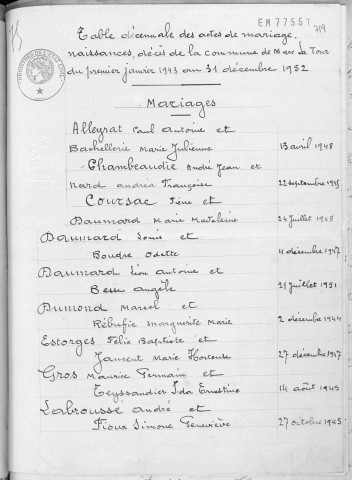 EM77551
719
Table décennale des actes de mariage,
naissances, décès de la commune de Marc la Tour
du premier janvier 1943 au 31 décembre 1952
Mariages
Alleyrat Paul Antoine et
Bachellerie Marie Julienne 13 avril 1948
Chambeaudie André Jean et
Nard Andréa Françoise 22 septembre
Coursac Pierre et
Daumard Marie Madeleine 24 juillet
Daumard Louis et
Boudre Odette 4 décembre 1947
Daumard Léon Antoine et
Besse Angèle 21 juillet 1951
Dumond Marcel et
Rébufie Marguerite Marie 2 décembre 1944
Estorges Felix Baptiste et
Jaucent Marie Hortense 27 décembre 1947
Gros Maurice Germain et
Teyssandier Ida Ernestine 14 août 1945
Labrousse André et
Fioux Simone Geneviève 27 octobre 1945